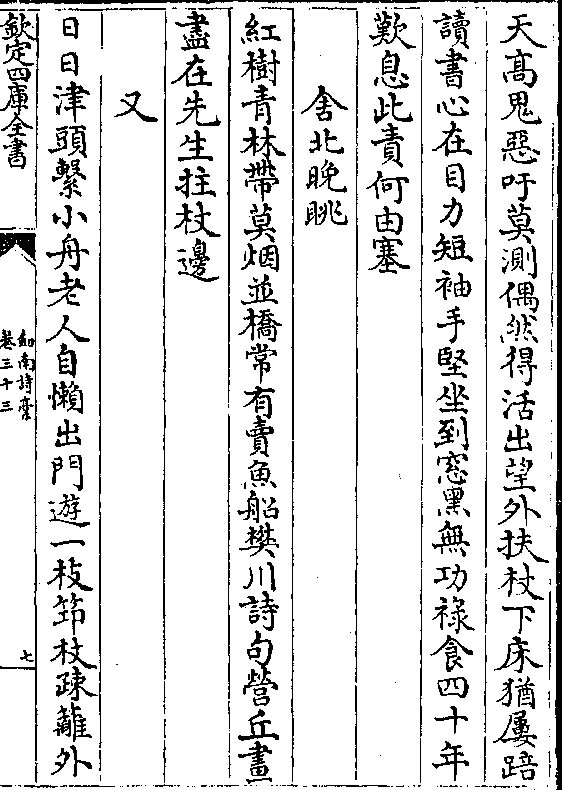 天高鬼惡吁莫測偶然得活出望外扶杖下床猶屢踣
讀書心在目力短袖手堅坐到窓黑無功祿食四十年
歎息此責何由塞
舍北晚眺
紅樹青林帶莫烟並橋常有賣魚船樊川詩句營丘畫
盡在先生拄杖邊
又
日日津頭繫小舟老人自懶出門遊一枝笻杖疎籬外
欽定四庫全書
劍南詩藁
卷三十三
七